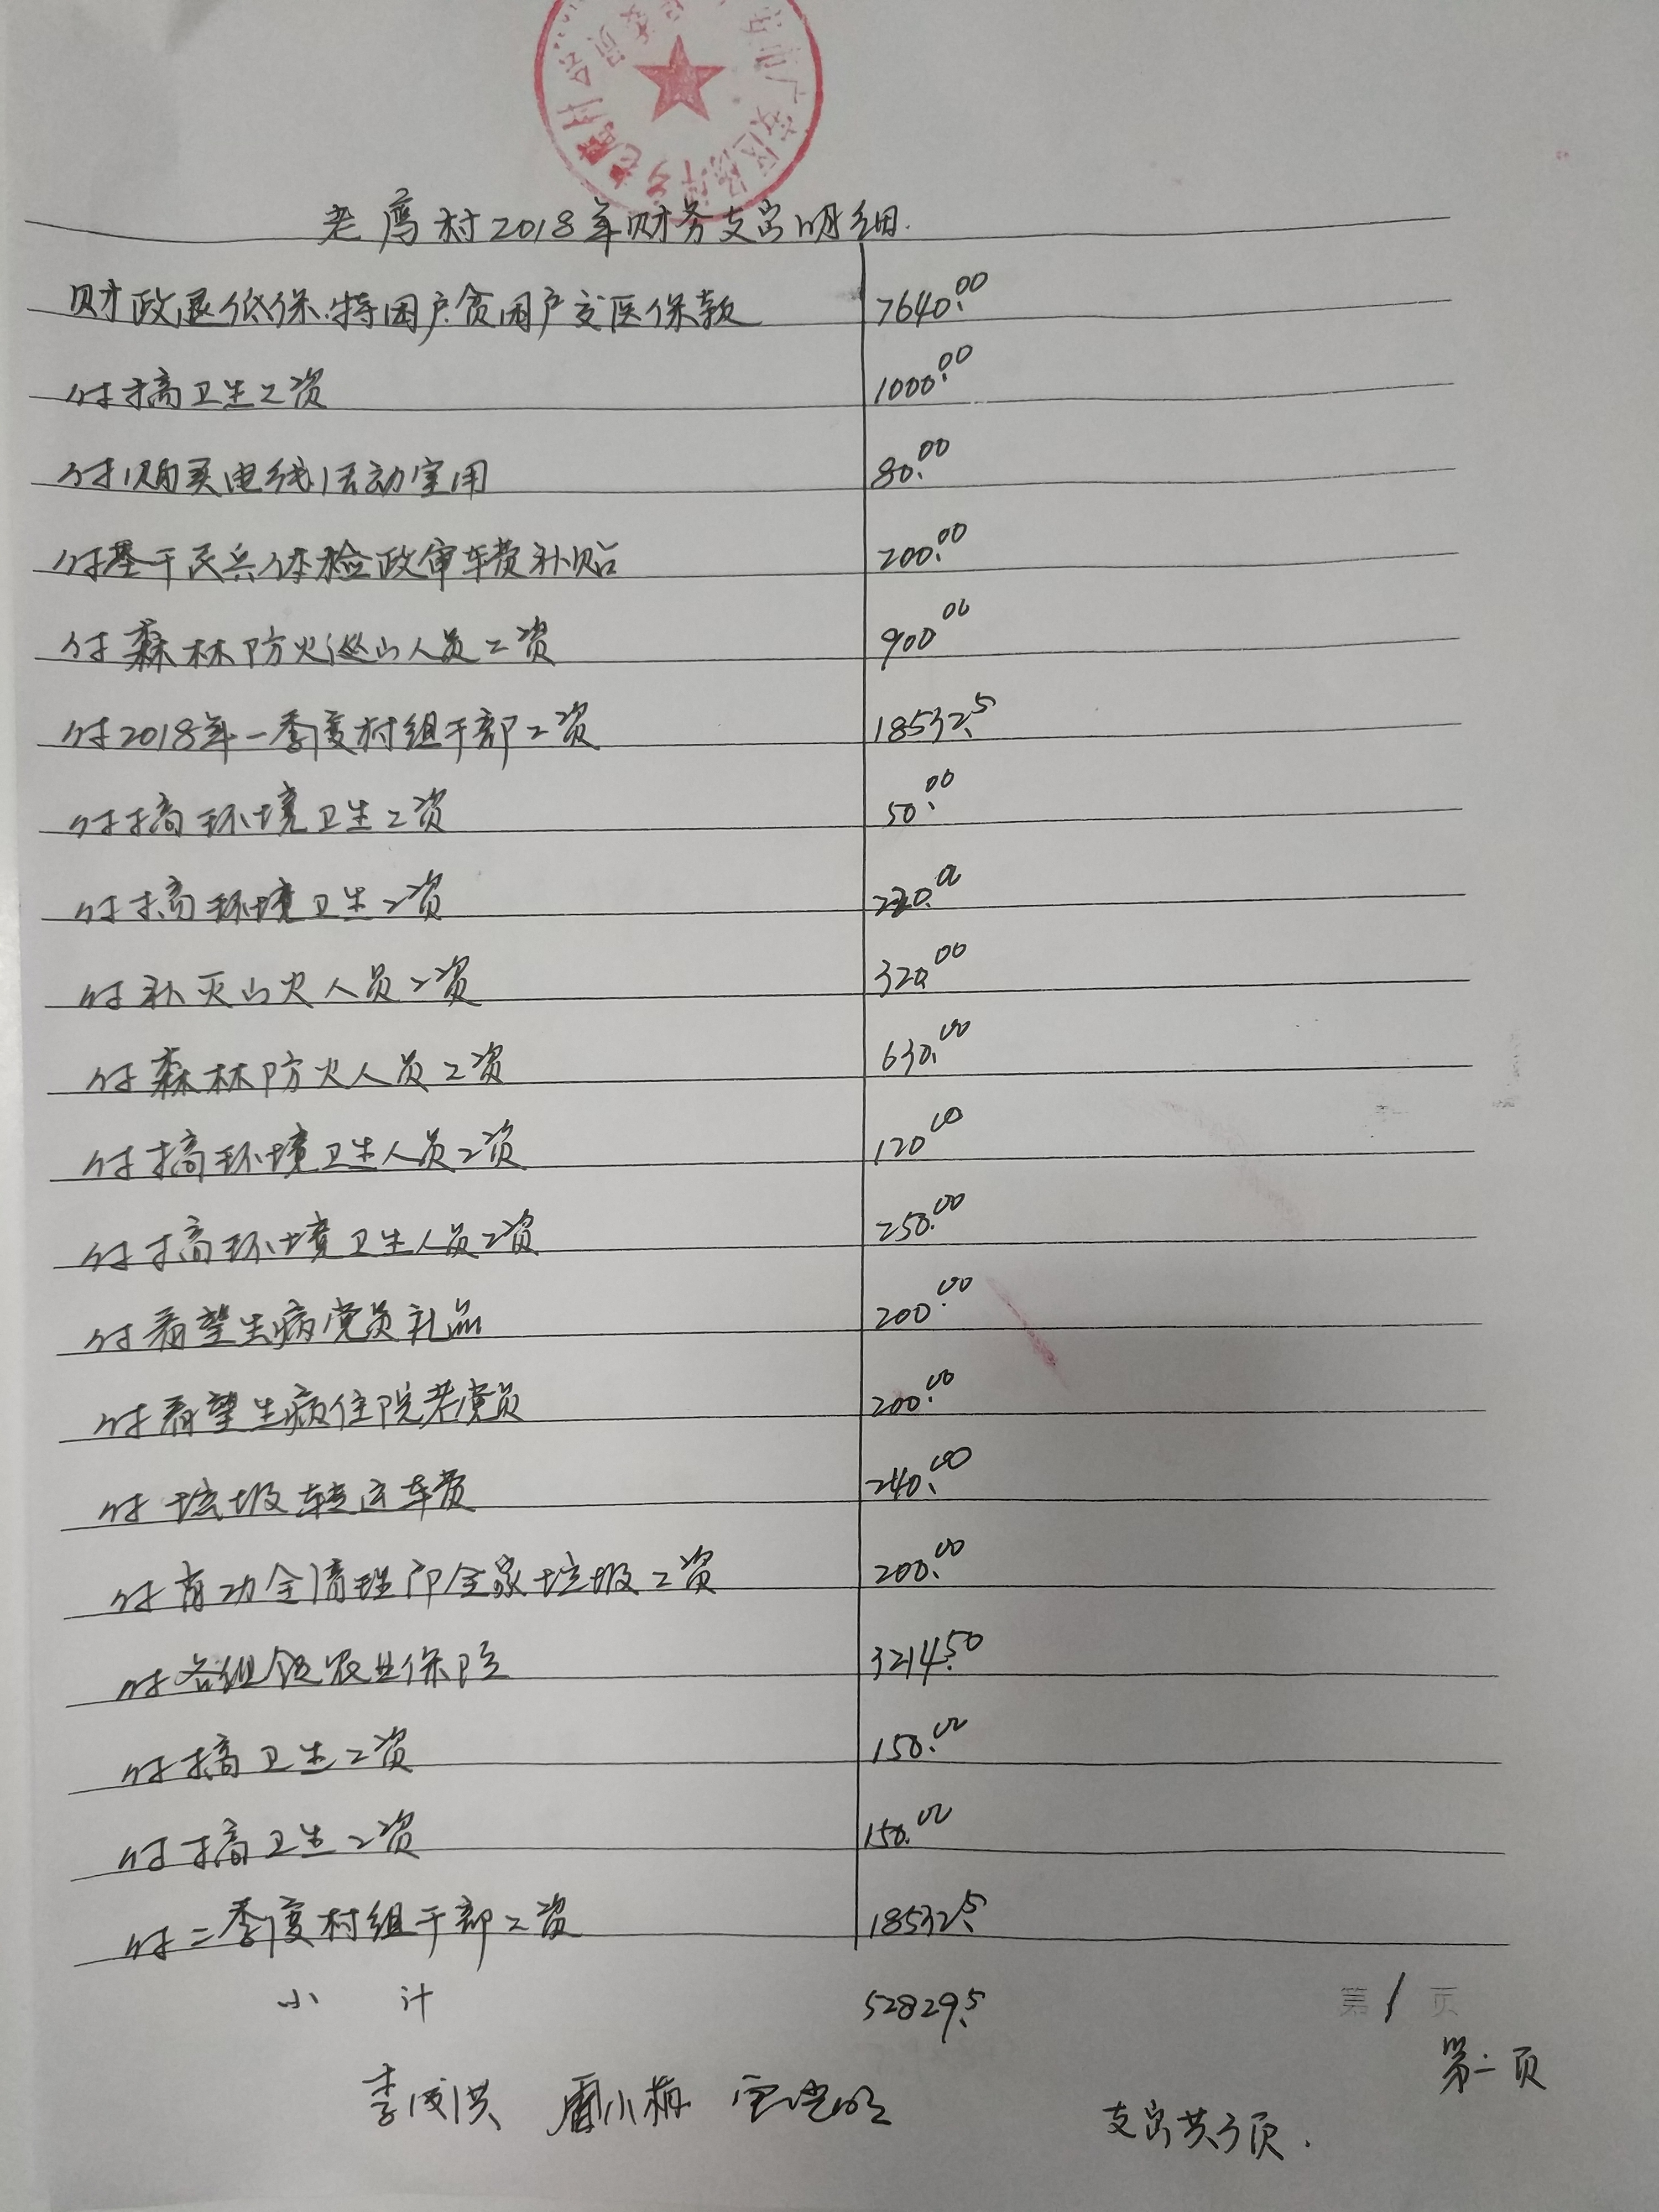 老鹰村2018年财务支出明细.
财政退低保.特困户.贫困户交医保款 7640.00
付搞卫生工资 1000.00
付购买电线活动室用 80.00
付基干民兵体检政审车费补贴 200.00
付森林防火巡山人员工资 900 00
付2018年一季度村组干部工资 18532.5
付搞环境卫生工资 50.00
付搞环境卫生工资 220.00
付补灭山火人员工资 320.00
付森林防火人员工资 630.00
付搞环境卫生人员工资 120 00
付搞环境卫生人员工资 250.00
付看望生病党员礼品 200.00
付看望生病住院老党员 200.00
付垃圾转运车费 240.00
付 全清理 全家垃圾工资 200.00
付各组领农业保险 3214.50
付搞卫生工资 150.00
付搞卫生工资 150.00
付二季度村组干部工资 18532.5
小 计 52829.5
第1页
第一页
李成洪 小梅
支出共3页.